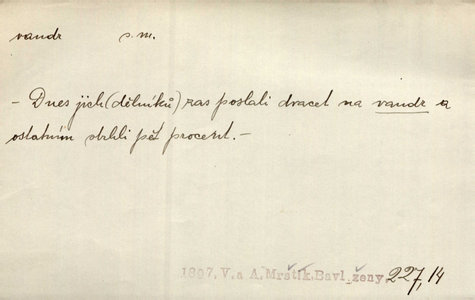 vandr s. m.
– Dnes jich (dělníků) zas poslali dvacet na vandr a
ostatním strhli pět procent. –
1897, V. a A. Mrštík, Bavl. ženy 227,14